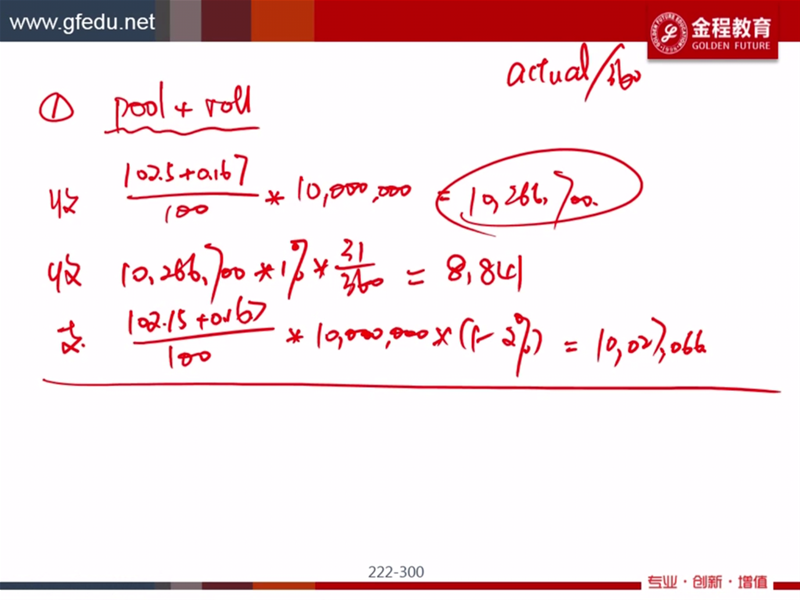 www.gfedu.net
金程教育
GOLDEN FUTURE
actual/360
① pool + roll
收 102.5+0.167/100 * 10,000,000 = 10,266,700.
收 10,266,700 * 1% * 31/360 = 8,841
支. 102.15+0.167/100 * 10,000,000 * (1-2%) = 10,027,066.
222-300
专业·创新·增值